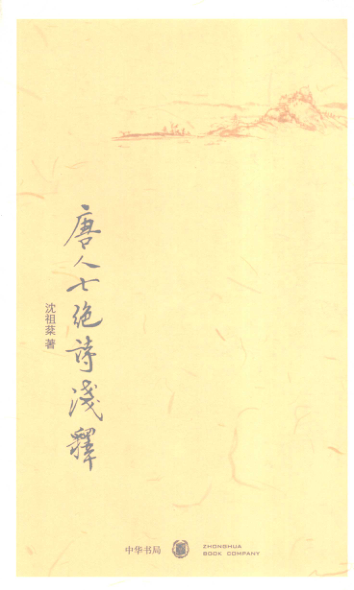 唐人七绝詩淺釋
沈祖棻 著
中华书局
ZHONGHUA
BOOK COMPANY